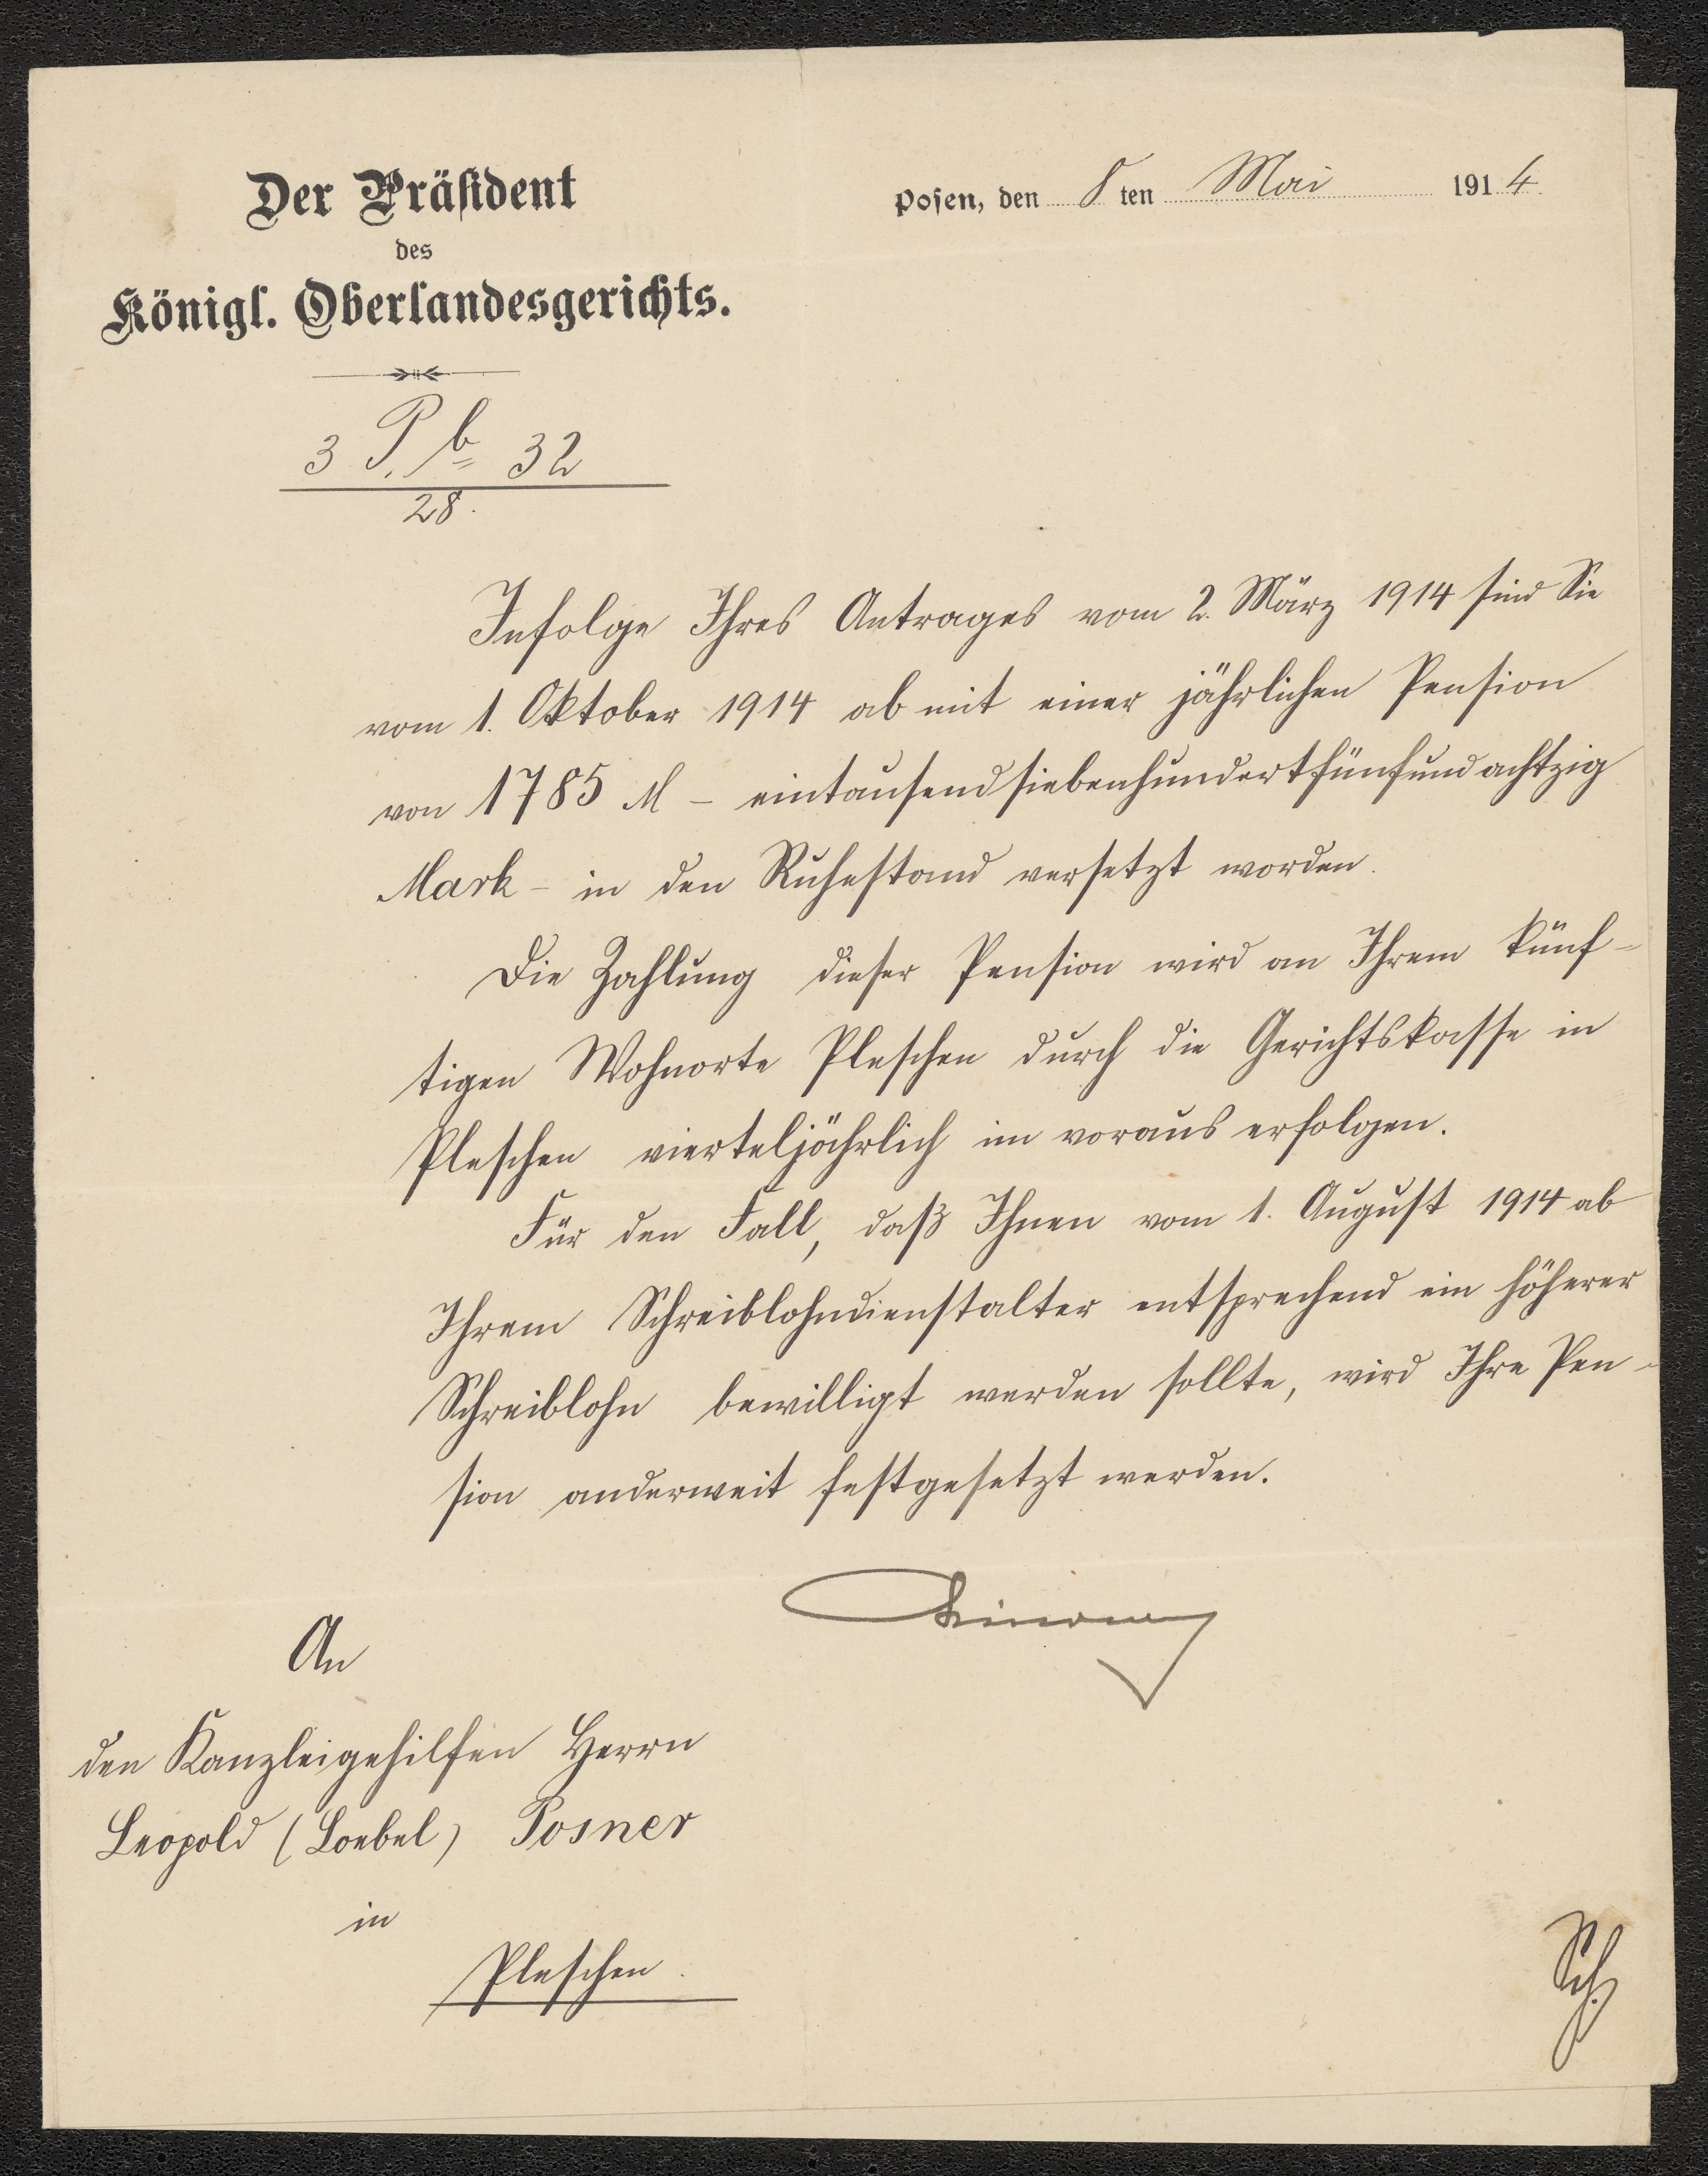 Der Präsident
des
Königl. Oberlandesgerichts.
Posen, den 8 ten Mai 1914
3 P. b 32
28.
Infolge Ihres Antrages vom 2. März 1914 sind Sie
vom 1. Oktober 1914 ab mit einer jährlichen Pension
von 1785 M – eintausendsiebenhundertfünfundachtzig
Mark – in den Ruhestand versetzt worden.
Die Zahlung dieser Pension wird an Ihrem künf-
tigen Wohnorte Pleschen durch die Gerichtskasse in
Pleschen vierteljährlich im voraus erfolgen.
Für den Fall, daß Ihnen vom 1. August 1914 ab
Ihrem Schreiblohndienstalter entsprechend ein höherer
Schreiblohn bewilligt werden sollte, wird Ihre Pen-
sion anderweit festgesetzt werden.
An
den Kanzleigehilfen Herrn
Leopold (Loebel) Posner
in
Pleschen.
Sch.